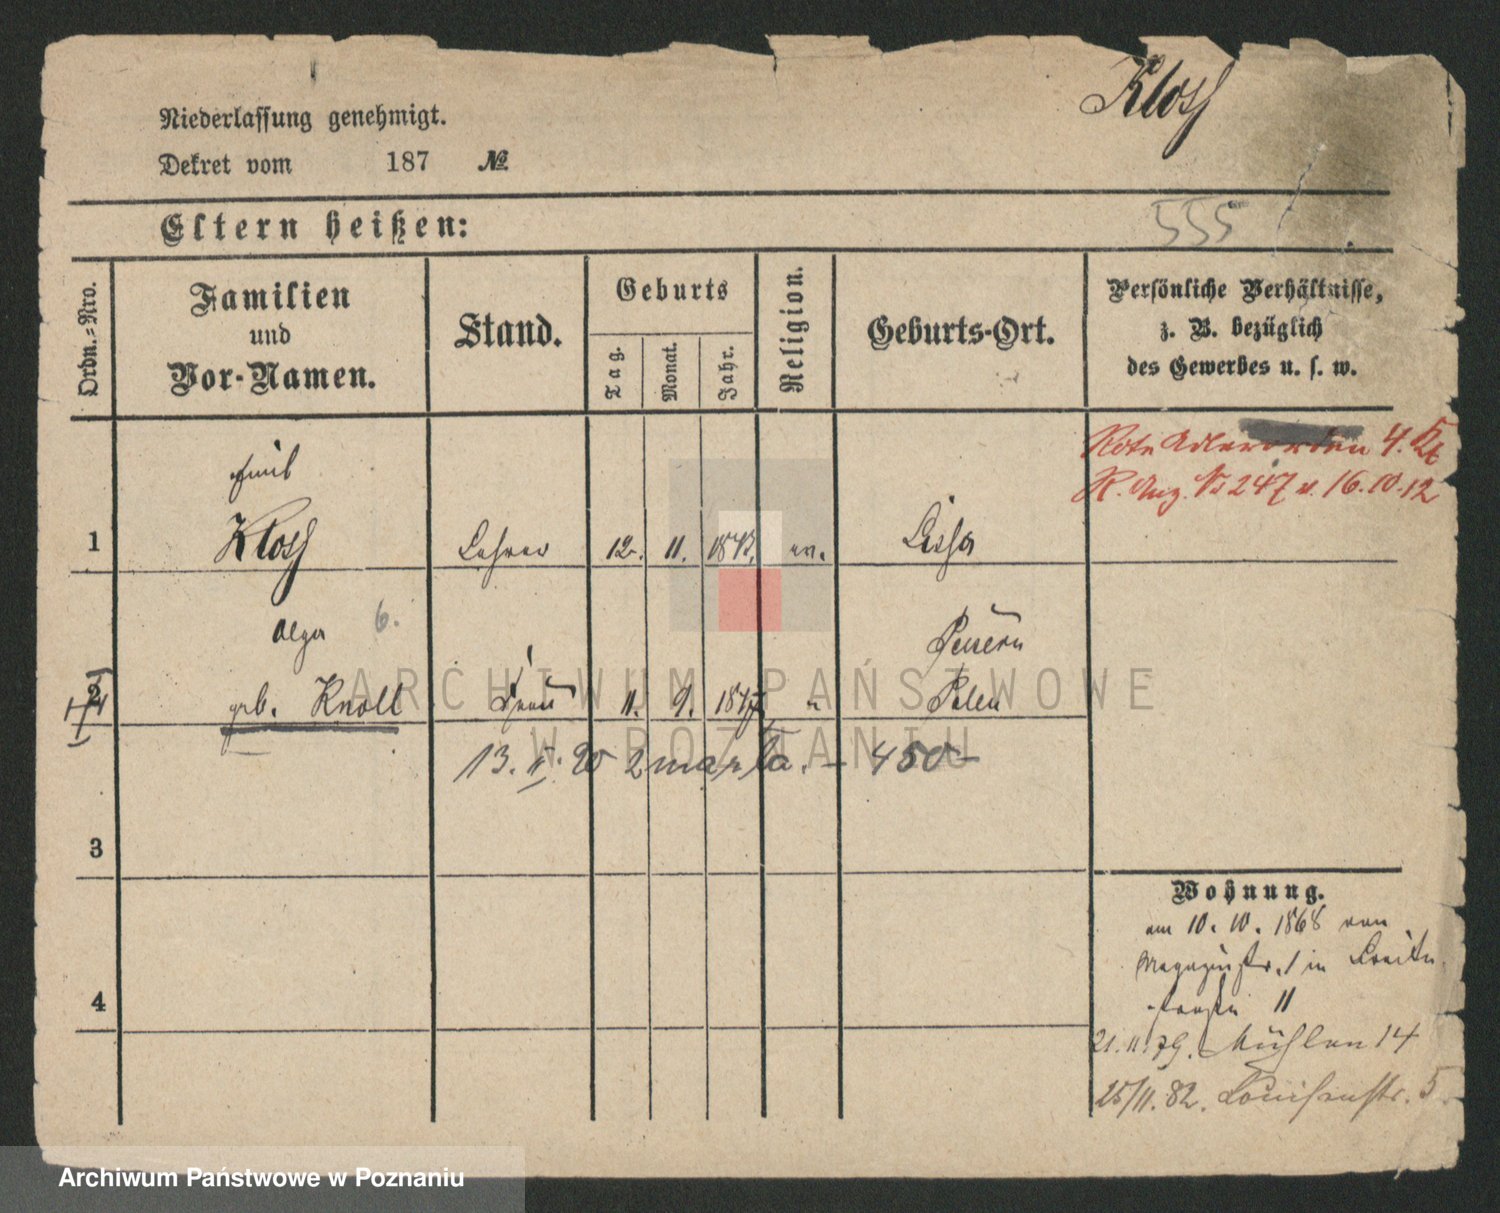 Kloss
Niederlassung genehmigt.
Dekret vom 187 №
555
Eltern heißen:
Ordn.=Nro.
Familien
und
Vor-Namen.
Stand.
Geburts
Tag.
Monat.
Jahr.
Religion.
Geburts-Ort.
Persönliche Verhältnisse,
z. B. bezüglich
des Gewerbes u. s. w.
Rote Adlerorden 4. Kl
R. Anz. No 247 v. 16.10.12
Emil
1 Kloss Lehrer 12. 11. ev. Lissa
Olga 6.
2 geb. Knoll Frau 11. 9. 1847 "
Polen
13. II. 20 2 marta. - 450-
3
4
Wohnung.
am 10. 10. 1868 von
Magazinstr. 1 in Breite
straße 11
21. 11. 79. Mühlen 14
25/11. 82. Louisenstr. 5.
ARCHIWUM PAŃSTWOWE
W POZNANIU
Archiwum Państwowe w Poznaniu